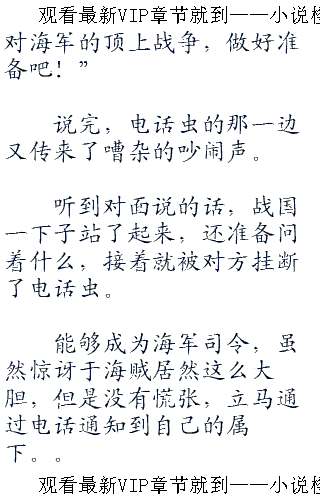 观看最新VIP章节就到——小说
对海军的顶上战争，做好准
备吧！”
说完，电话虫的那一边
又传来了嘈杂的吵闹声。
听到对面说的话，战国
一下子站了起来，还准备问
着什么，接着就被对方挂断
了电话虫。
能够成为海军司令，虽
然惊讶于海贼居然这么大
胆，但是没有慌张，立马通
过电话通知到自己的属
下。。
观看最新VIP章节就到——小说